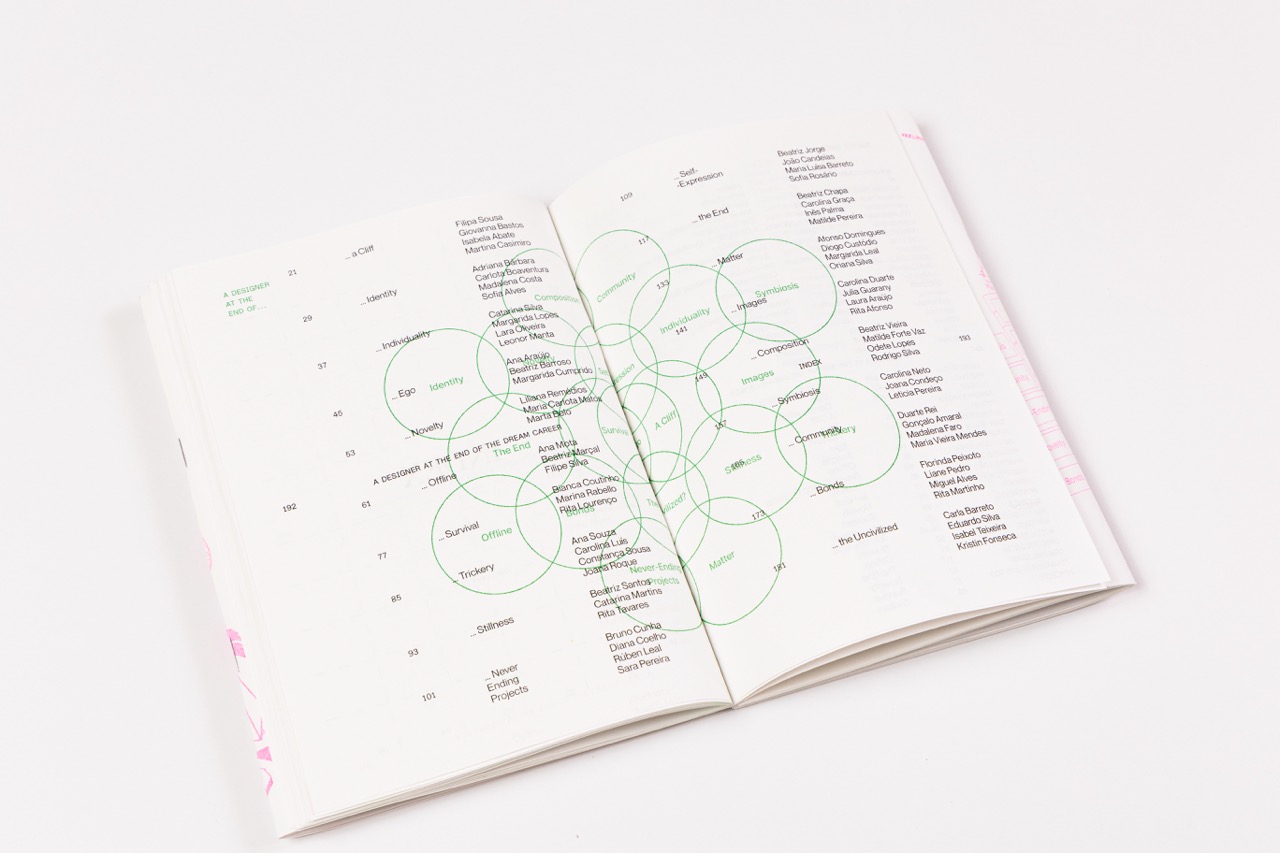 A DESIGNER
AT THE
END OF...
21
_a Cliff
Filipa Sousa
Giovanna Bastos
Isabela Abate
Martina Casimiro
29
_Identity
Adriana Bárbara
Carlota Boaventura
Madalena Costa
Sofia Alves
37
_Individuality
Catarina Silva
Margarida Lopes
Lara Oliveira
Leonor Manta
45
_Ego
Ana Araújo
Beatriz Barroso
Margarida Cumprido
53
_Novelty
Liliana Remédios
Maria Carlota Matos
Marta Belo
A DESIGNER AT THE END OF THE DREAM CAREER
192
61
_Offline
Ana Mota
Beatriz Marçal
Filipe Silva
77
_Survival
Bianca Coutinho
Marina Rabello
Rita Lourenço
85
_Trickery
Ana Souza
Carolina Luis
Constança Sousa
Joana Roque
93
_Stillness
Beatriz Santos
Catarina Martins
Rita Tavares
101
_Never
Ending
Projects
Bruno Cunha
Diana Coelho
Rúben Leal
Sara Pereira
Composition
Identity
The End
Offline
Bonds
Never-Ending
Projects
109
_Self-
-Expression
Beatriz Jorge
João Candeias
Maria Luisa Barreto
Sofia Rosário
117
_the End
Beatriz Chapa
Carolina Graça
Inês Palma
Matilde Pereira
133
_Matter
Afonso Domingues
Diogo Custódio
Margarida Leal
Oriana Silva
141
_Images
Carolina Duarte
Julia Guarany
Laura Araújo
Rita Afonso
149
_Composition
Beatriz Vieira
Matilde Forte Vaz
Odete Lopes
Rodrigo Silva
INDEX
193
157
_Symbiosis
Carolina Neto
Joana Condeço
Leticia Pereira
165
_Community
Duarte Rei
Gonçalo Amaral
Madalena Faro
Maria Vieira Mendes
173
_Bonds
Florinda Peixoto
Liane Pedro
Miguel Alves
Rita Martinho
181
_the Uncivilized
Carla Barreto
Eduardo Silva
Isabel Teixeira
Kristin Fonseca
Community
Individuality
Symbiosis
Images
A Cliff
Stillness
Matter